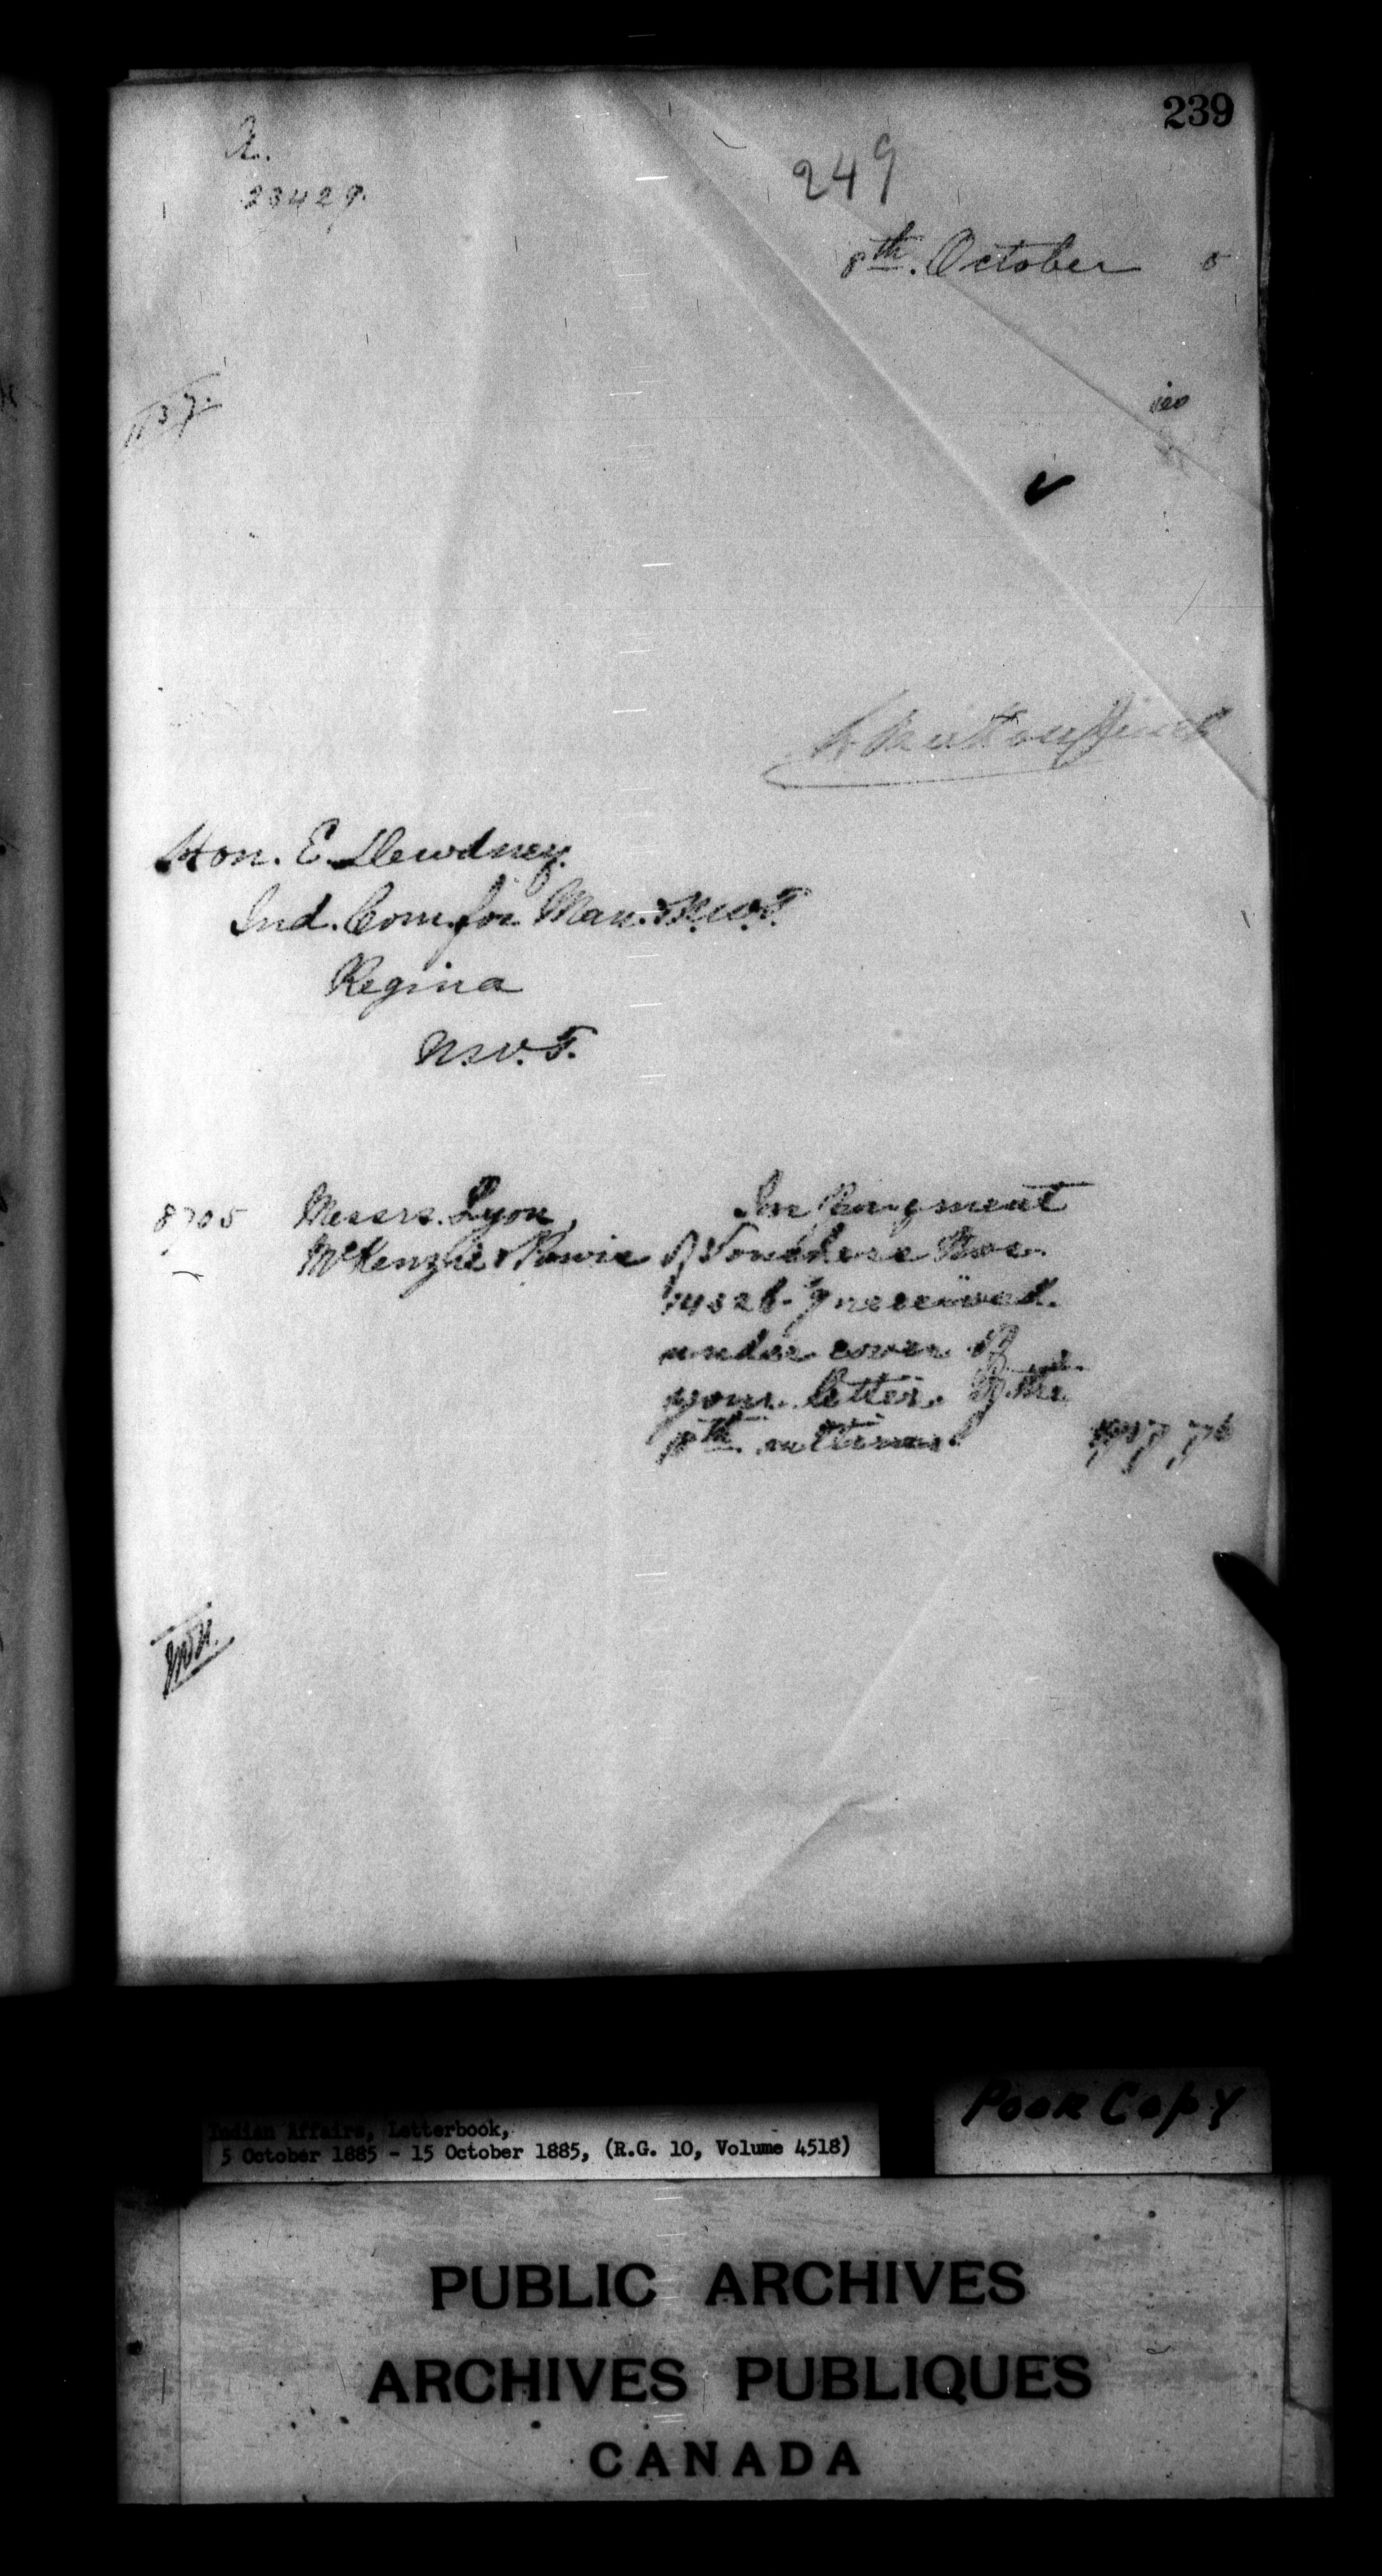 239
249
23429.
8th. October 5
Hon. E. Dewdney.
Ind. Com. for Man. & N.W.T.
Regina
N.W.T.
8705 Messrs. Lyon, In Payment
McKenzie & Powis of Vouchers Nos.
received
under cover of
your letter of the
ultimo.
Indian Affairs, Letterbook,
5 October 1885 - 15 October 1885, (R.G. 10, Volume 4518)
Poor Copy
PUBLIC ARCHIVES
ARCHIVES PUBLIQUES
CANADA